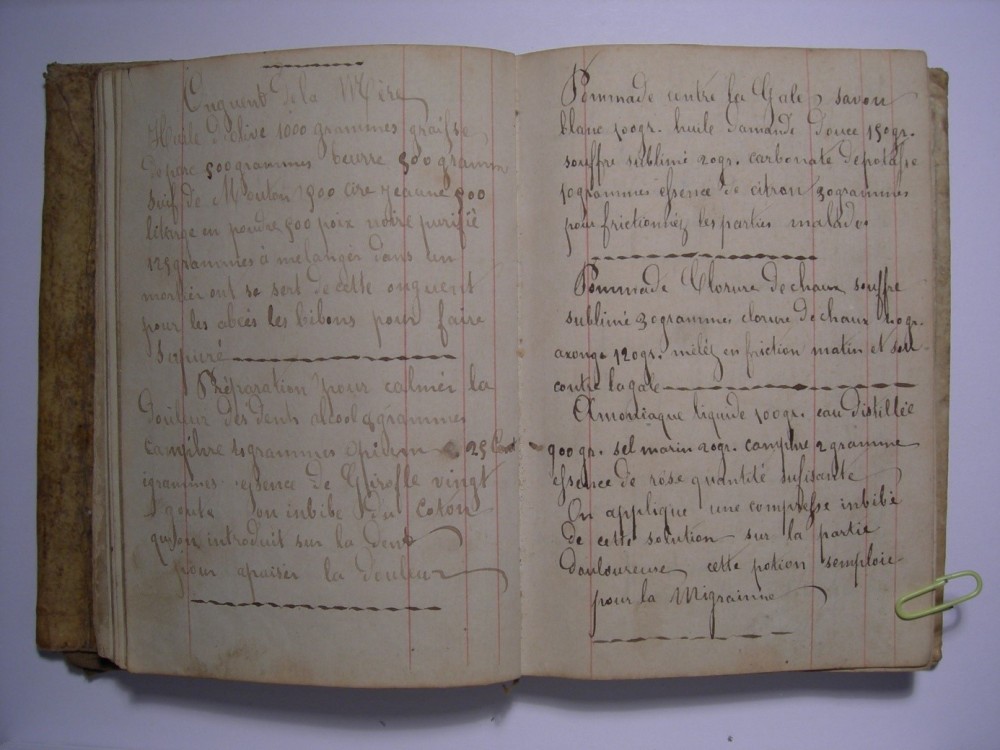 Onguent de la Mère
Huile d'olive 1000 grammes graisse
de porc 500 grammes beurre 500 gramm
suif de Mouton 1500 cire jeaune 500
litarge en poudre 500 poix noire purifié
125 grammes à melanger dans un
mortier ont se sert de cette onguent
pour les abcès les bibons pour faire
supuré
Préparation pour calmér la
Douleur des dents alcool 4 grammes
camphre 4 grammes opium 25 Cent
igrammes essence de Girofle vingt
goute on inbibe du Coton
quon introduit sur la dent
pour apaiser la douleur
Pommade contre la Gale savon
blanc 100gr. huile damande Douce 150gr.
souffre sublimé 20gr. carbonate depotasse
10grammes essence de citron 30grammes
pour frictionnéz les parties malades
Pommade Clorure de chaux souffre
sublimé 30grammes clorure de chaux 20gr.
axonge 120gr. mêléz en friction matin et soir
contre la gale
Amoniaque liquide 100gr. eau distillée
900 gr. sel marin 20gr. camphre 2 gramme
essence de rose quantité sufisante
On applique une compresse inbibé
de cette solution sur la partie
douloureuse cette potion semploie
pour la Migrainne